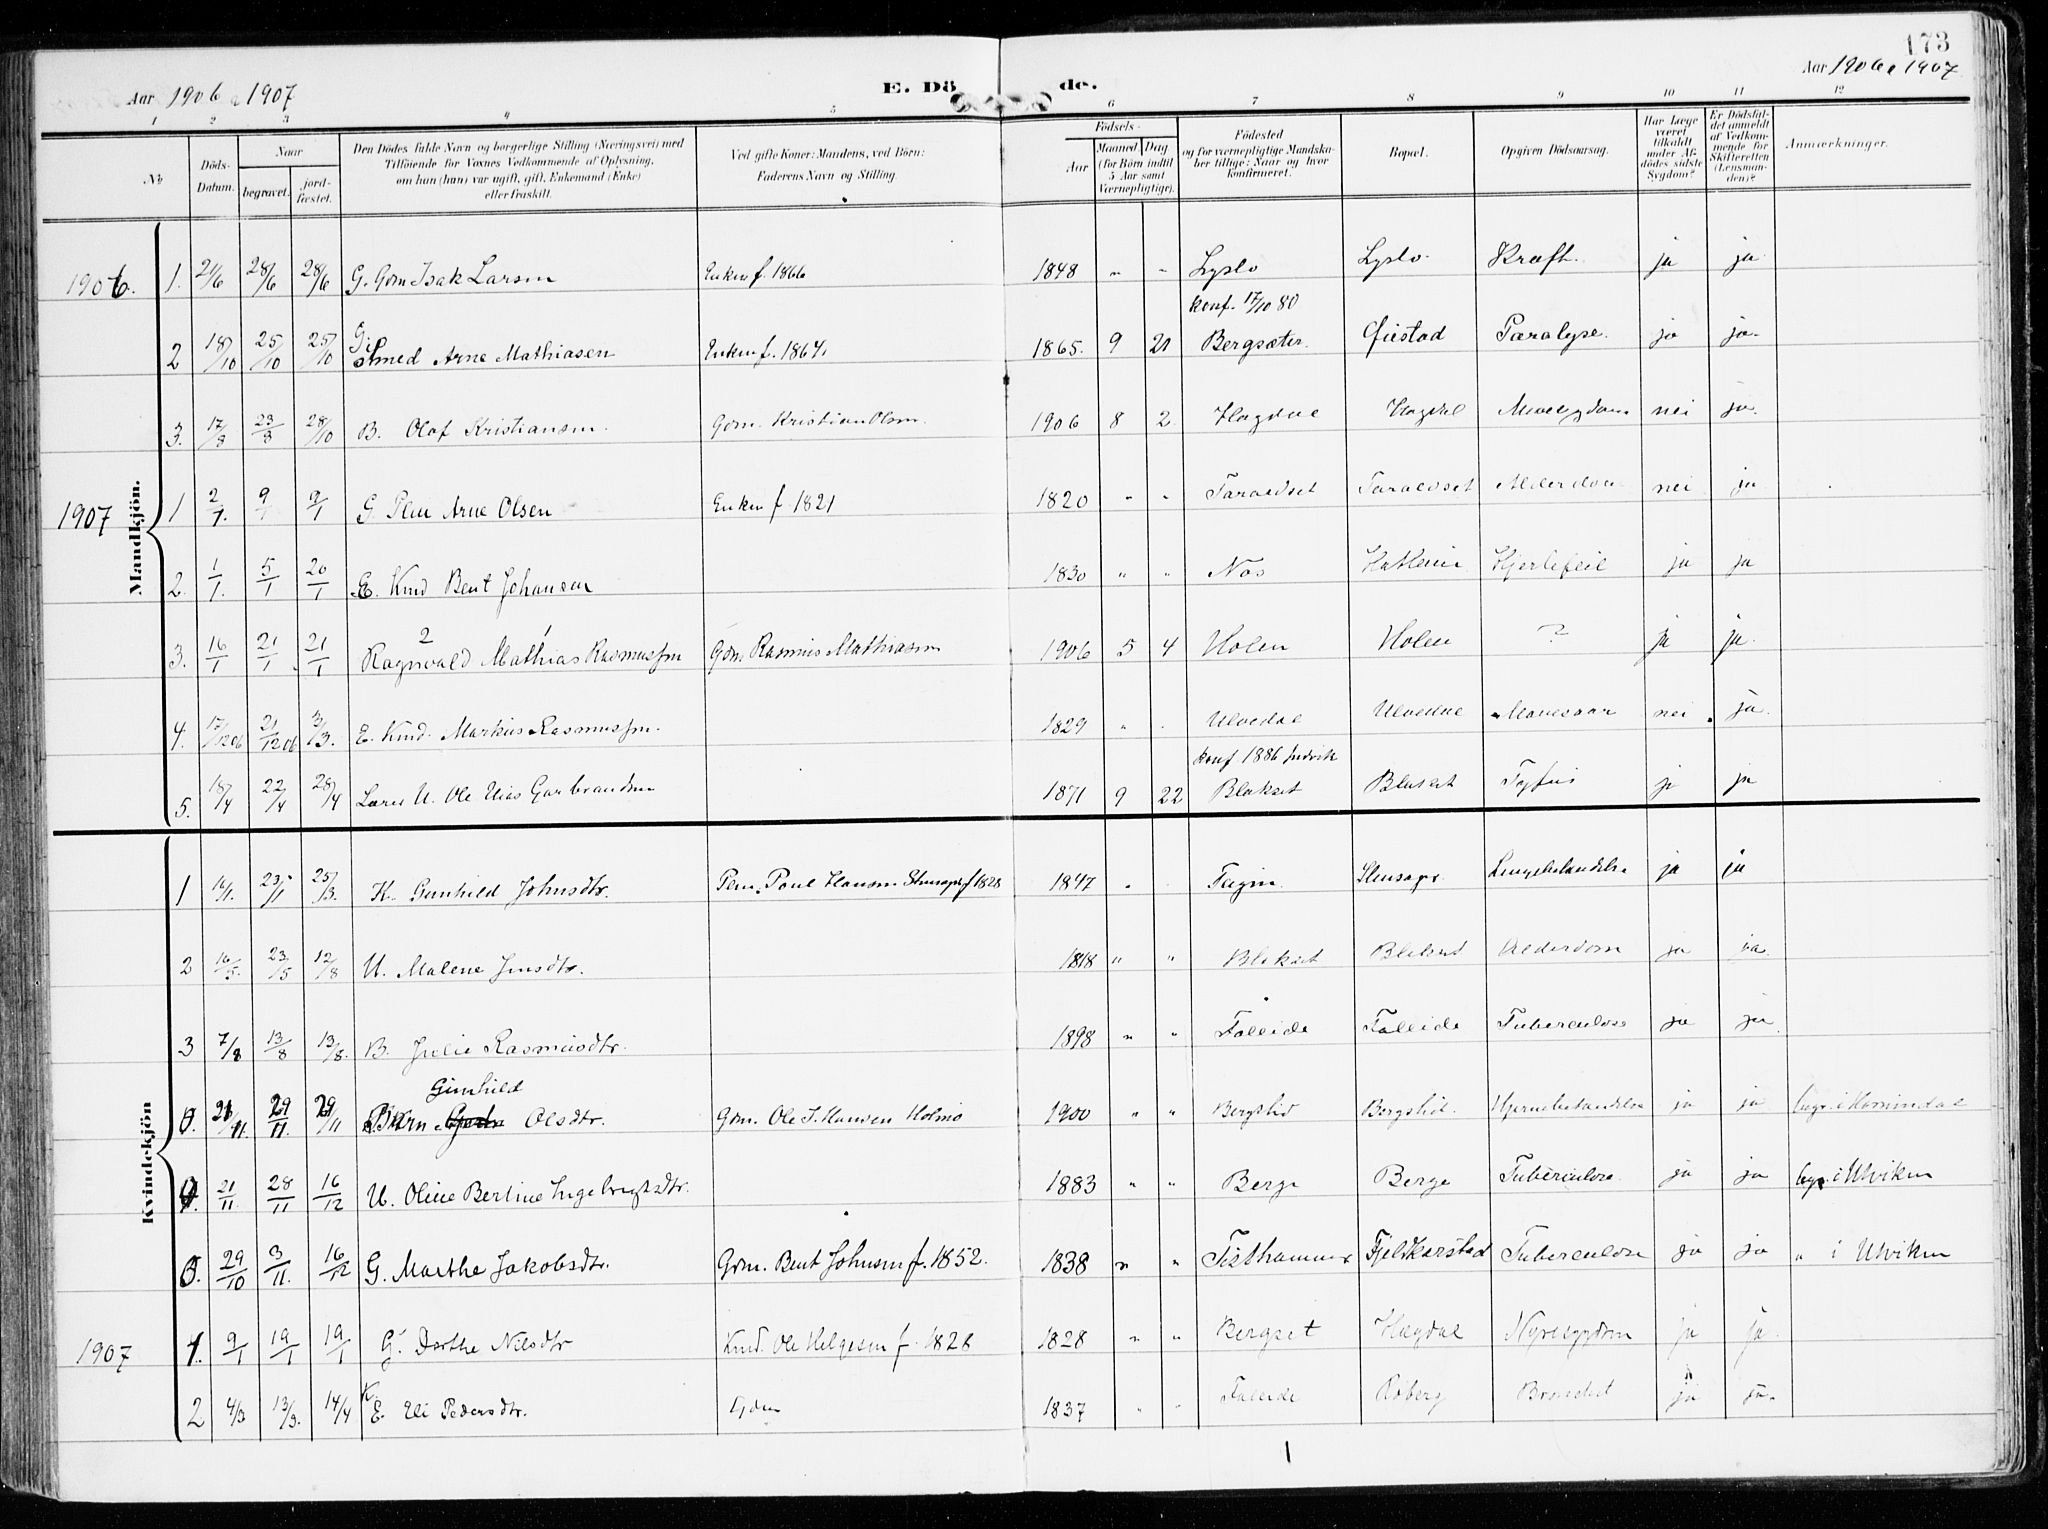 173
Aar 1906 & 1907
E. Dö de.
Aar 1906 & 1907
1 2 3 4 5 6 7 8 9 10 11 12
No
Döds-Datum.
Naar
begravet.
jord-fæstet.
Den Dödes fulde Navn og borgerlige Stilling (Næringsvei) med Tilföiende for Voxnes Vedkommende af Oplysning, om han (hun) var ugift, gift, Enkemand (Enke) eller fraskilt.
Ved gifte Koner: Mandens, ved Börn: Faderens Navn og Stilling.
Födsels-
Aar
Maaned
Dag
(for Börn indtil 5 Aar samt Værnepligtige).
Födested og for værnepligtige Mandskaber tillige: Naar og hvor konfirmeret.
Bopæl.
Opgiven Dödsaarsag.
Har Læge været tilkaldt under Afdödes sidste Sygdom?
Er Dödsfaldet anmeldt af Vedkommende for Skifteretten (Lensmanden)?
Anmærkninger.
Mandkjön.
1906. 1. 21/6 28/6 28/6 G. Gdm Isak Larsen Enkem f. 1866 1848 " " Lyslo Lyslo Kræft. ja ja
konf. 17/10 80
2 18/10 25/10 25/10 G. Smed Arne Mathiasen Enkem f. 1864 1865. 9 21 Bergsæter. Öiestad Paralyse. ja ja
3. 17/8 23/8 28/10 B. Olaf Kristiansen. Gdm. Kristian Olsen. 1906 8 2 Hagdal Hagdal Mavesygdom nei ja.
1907 1 2/1. 9/1 9/1 G Plm Arne Olsen Enkem f. 1821 1820 " " Taraldset Taraldset Alderdom nei ja
2. 1/1. 5/1 20/1 E. Knd Bent Johansen 1830 " " Nos Hjertefeil ja ja
3. 16/1 21/1 21/1 Ragnvald 2 Mathias 1 Rasmussen Gdm. Rasmus Mathiasen 1906 5 4 Holen Holen ? ja ja
4. 17/12 06 21/12 06 3/3. E. Knd. Markus Rasmussen. 1829 " Ulvedal Ulvedal nei ja.
konf 1886 Indvik
5. 18/4 22/4 28/4 U. Ole Elias Garbrandsen 1871 9 22 Blakset Blakset Tyfus ja ja
Kvindekjön
1 16/1. 23/1 25/3. K. Gunhild Johnsdtr. Plm. Paul Hansen f 1828 1847 Tagin Lungebetændelse ja ja
2 16/5. 23/5 12/8 U. Malene Jensdtr. 1818 " " Blakset Blakset Alderdom ja ja
3 7/8 13/8 13/8. B. Julie Rasmusdtr. 1898 " " Faleide Faleide Tuberculose ja ja
Gunhild
21/11. 29/11. 29/11 Barn Olsdtr. Gdm. Ole J. Hansen Holmö 1900 " " Bergslid Bergslid. Hjernebetændelse ja ja begr. i Hornindal
21/11. 28/11 16/12 U. Oline Bertine Ingebrigtsdtr. 1883 " " Berge Berge Tuberculose. ja ja begr. i Utviken
29/10 3/11. 16/12 G. Marthe Jakobsdtr. Gdm. Bent Johnsen f. 1852. 1838 " " Tisthammer Fjeldkarstad Tuberculose ja ja " i Utviken
1907 1. 9/1 19/1 19/1 G. Dorthe Nilsdtr Knd. Ole Helgesen f. 1828 1828 " " Bergset Hagdal Nyresygdom ja ja.
2 4/3 13/3. 14/4 K. E. Eli Pedersdtr. Gdm 1837 " " Faleide Roberg Bronchit ja ja.